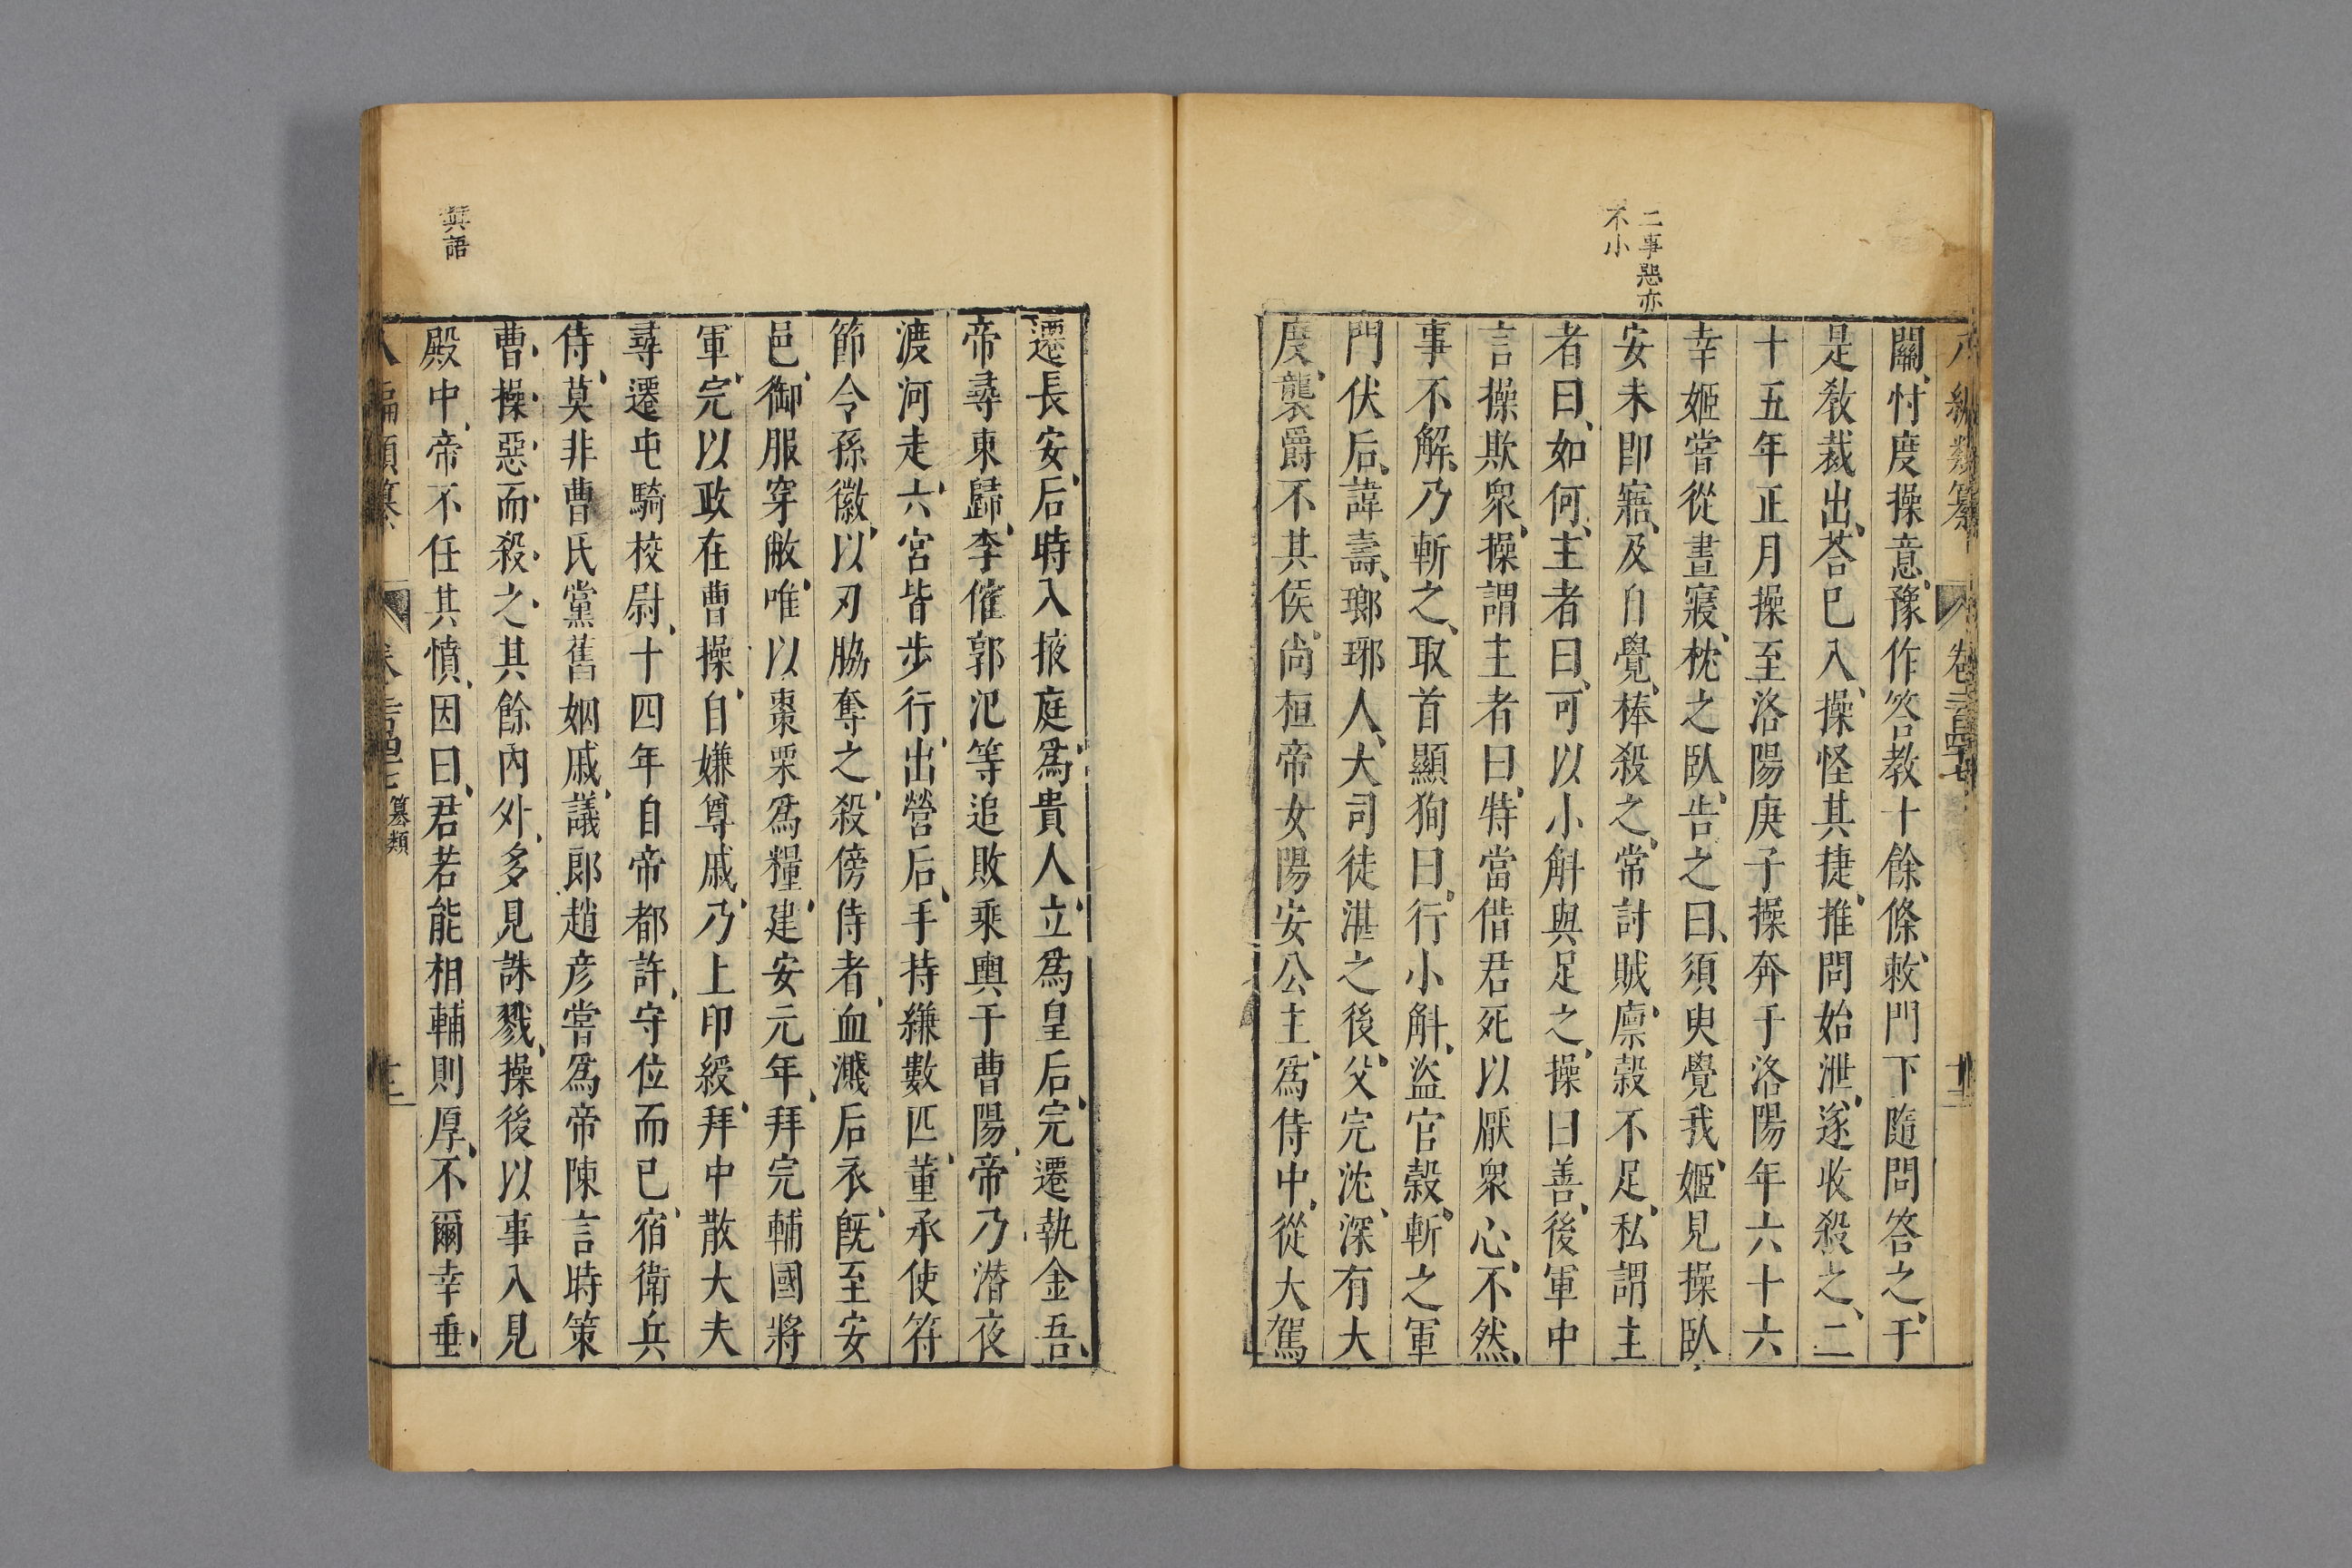 二事惡亦
不小
八編類纂 卷二百四十七 十二
關、忖度操意、豫作答教十餘條、敕門下隨問答之、于
是敎裁出、荅已入、操怪其捷、推問始泄、遂收殺之、二
十五年正月操至洛陽庚子操奔于洛陽年六十六
幸姬嘗從晝寢、枕之臥、告之曰、須臾覺我、姬見操臥
安未即寤、及自覺、棒殺之、常討賊、廩穀不足、私謂主
者曰、如何、主者曰、可以小斛與足之、操曰善、後軍中
言操欺衆、操謂主者曰、特當借君死以厭衆心、不然、
事不解、乃斬之、取首顯狥曰、行小斛、盜官穀、斬之軍
門伏后、諱壽、瑯琊人、大司徒湛之後、父完沈、深有大
度、襲爵不其侯、尚桓帝女陽安公主、爲侍中、從大駕
遷長安、后時入掖庭爲貴人、立爲皇后、完遷執金吾、
帝尋東歸、李傕郭汜等追敗乘輿于曹陽、帝乃潜夜
渡河走、六宮皆步行、出營后、手持縑數匹、董承使符
節令孫徽、以刃脇奪之、殺傍侍者、血濺后衣、旣至安
邑、御服穿敝、唯以棗栗爲糧、建安元年、拜完輔國將
軍、完以政在曹操、自嫌尊戚、乃上印綬、拜中散大夫
尋遷屯騎校尉、十四年自帝都許、守位而已、宿衛兵
侍、莫非曹氏黨舊姻戚、議郎趙彥嘗爲帝陳言時策
曹操惡而殺之、其餘內外、多見誅戮、操後以事入見
殿中、帝不任其憤、因曰、君若能相輔則厚、不爾幸垂、
異語
八編類纂 卷二百四十七 簒類 十二